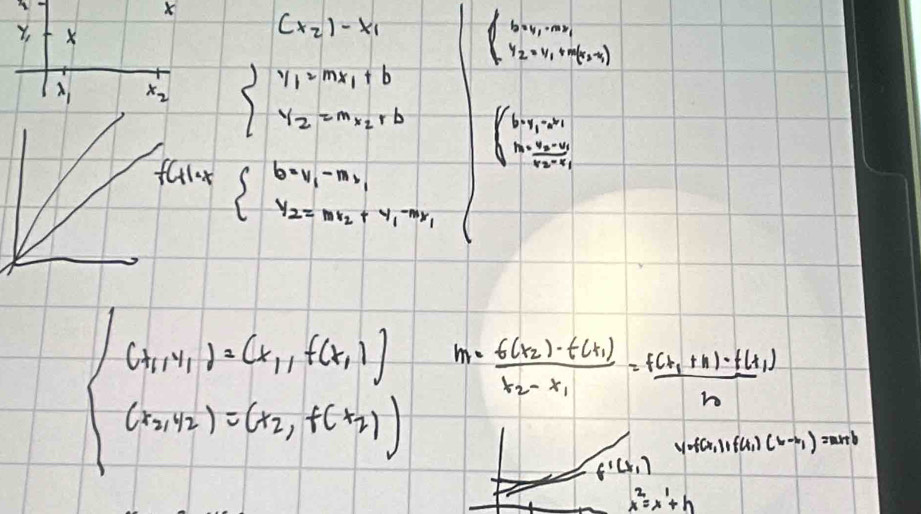 x
y₁ x
x₁ x₂
(x₂) - x₁
{ y₁ = mx₁ + b
y₂ = mx₂ + b
f(x)=x
{ b = y₁ - mx₁
y₂ = mx₂ + y₁ - mx₁
{ b = y₁ - mx₁
y₂ = y₁ + m(x₂-x₁)
{ b = y₁ - mx₁
m = y₂ - y₁ / x₂ - x₁
(x₁, y₁) = (x₁, f(x₁))
(x₂, y₂) = (x₂, f(x₂))
m = f(x₂) - f(x₁) / x₂ - x₁ = f(x₁ + h) - f(x₁) / h
f'(x₁)
(x-x₁) = mx+b
x² = x¹ + h